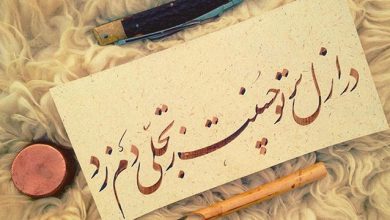 در ازل پرتو حسنت ز تجلّی دم زد